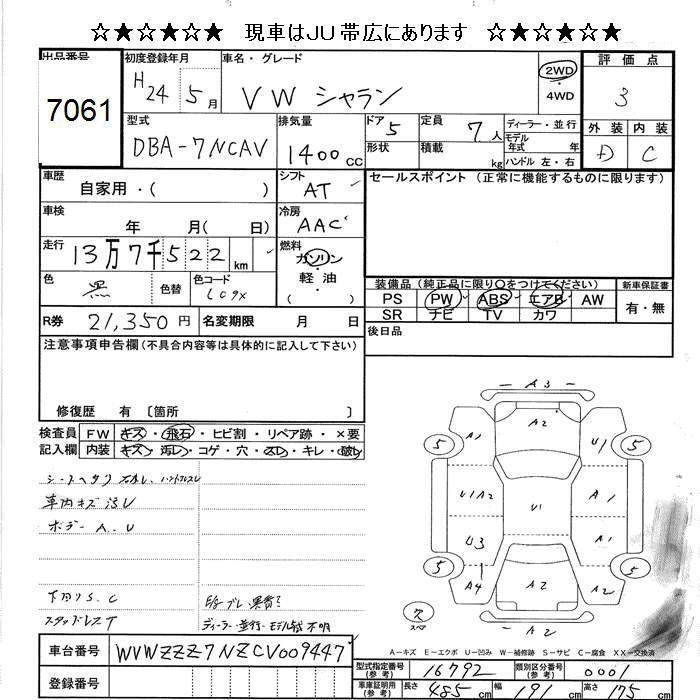 ☆★☆★☆★ 現車はJU帯広にあります ☆★☆★☆★
出品番号
7061
初度登録年月
H24 5月
車名・グレード
VW シャラン
2WD
・
4WD
評価点
3
外装 内装
D C
型式
DBA-7NCAV
排気量
1400cc
ドア 5
形状
定員 7人
積載 kg
ディーラー・並行
モデル
年式 年
ハンドル 左・右
車歴
自家用・( )
シフト
AT
セールスポイント(正常に機能するものに限ります)
車検
年 月( 日)
冷房
AAC
走行
13万7千522km
燃料
ガソリン
・
軽油
( )
色
黒
色替
色コード
LC9X
装備品(純正品に限り○をつけてください)
PS PW ABS エアB AW
SR ナビ TV カワ
新車保証書
有・無
R券 21,350円
名変期限 月 日
後日品
注意事項申告欄(不具合内容等は具体的に記入して下さい)
修復歴 有〔箇所 〕
検査員
記入欄
FW キズ・飛石・ヒビ割・リペア跡・×要
内装 キズ・汚レ・コゲ・穴・スレ・キレ・破レ
車内キズ汚レ
ボデー A.U
下回りS.C
スタッドレスT
ディーラー・並行・モデル年式 不明
A3
A2
A1
U1
5
5
U1A2
U1
A1
U3
A1
5
5
A4
A2
A2
A2
欠
スペア
A-キズ E-エクボ U-凹み W-補修跡 S-サビ C-腐食 XX-交換済
車台番号 WVWZZZ7NZCV009447
登録番号
型式指定番号
(参考)
16792
類別区分番号
(参考)
0001
車庫証明用
(参考)
長さ 485cm 幅 191cm 高さ 175cm